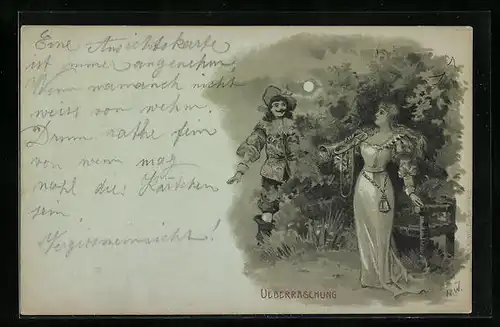 Eine Ansichtskarte
ist immer angenehm,
Wenn man auch nicht
weiss von wehm.
Drum rathe fein
von wem mag
wohl dies Kärtchen
sein.
Vergissmeinnicht!
UEBERRASCHUNG